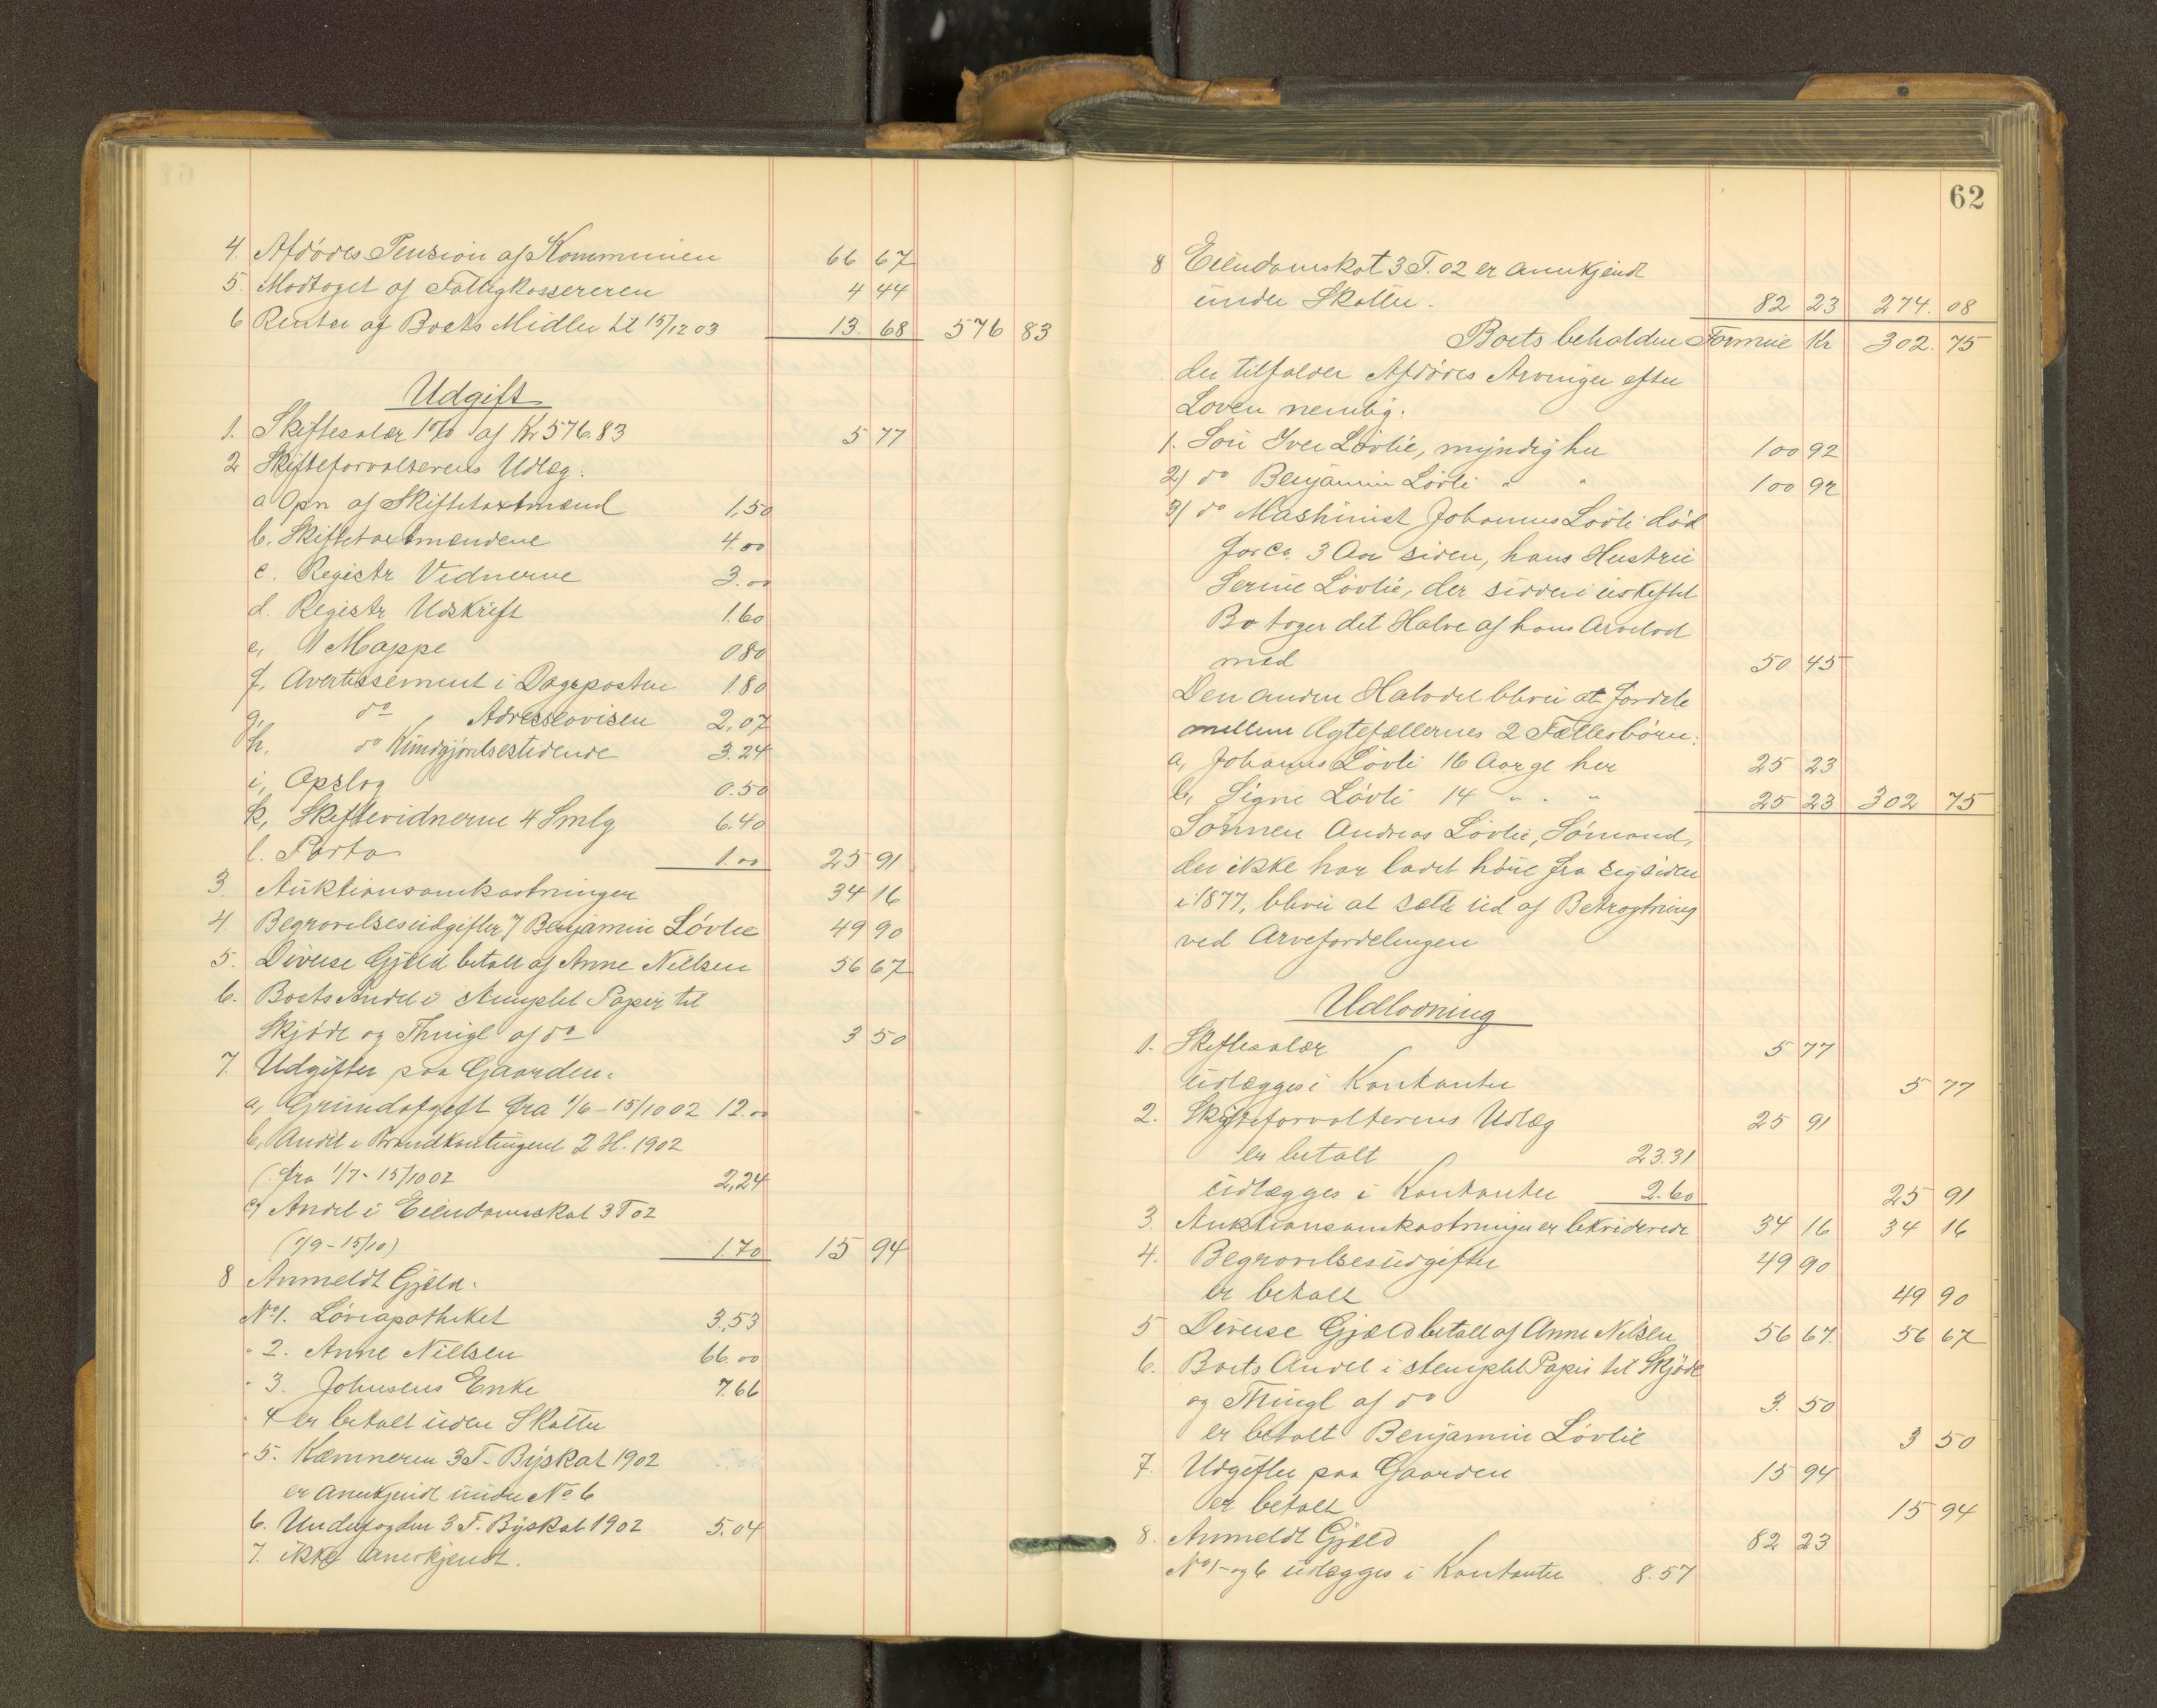 4. Afdødes Pension af Kommunen 66 67
5. Modtaget af Fattigkassereren 4 44
6 Renter af Boets Midler til 15/12 03 13. 68 576 83
Udgift
1. Skiftesalær 1% af Kr 576.83 5 77
2 Skifteforvalterens Udlæg:
a Opn af Skiftetaxtmænd 1,50
b. Skiftetaxtmændene 4.00
c. Registr Vidnerne 3.00
d. Registr Udskrift 1.60
e, 1 Mappe 0 80
f, Avertissement i Dagsposten 1.80
g, do Adresseavisen 2,07
h, do Kundgjørelsestidende 3.24
i, Opslag 0.50
k, Skiftevidnerne 4 Smlg 6.40
l. Porto 1.00 25 91
3. Auktionsomkostninger 34 16
4. Begravelsesudgifter / Benjamin Løvlie 49 90
5. Diverse Gjæld betalt af Anne Nielsen 56 67
6. Boets Andel i stemplet Papir til
Skjøde og Thingl af do 3 50
7. Udgifter paa Gaarden:
a, Grundafgift fra 1/6 - 15/10 02 12.00
b, Andel i Brandkontingent 2 H. 1902
(fra 1/7 - 15/10 02 2,24
c, Andel i Eiendomsskat 3 T 02
(1/9 - 15/10) 1.70 15 94
8 Anmeldt Gjæld:
No 1. Løveapotheket 3,53
" 2. Anne Nielsen 66.00
" 3. Johnsens Enke 7.66
" 4 er betalt uden Skatten
" 5. Kæmneren 3 T. Byskat 1902
er anerkjendt under No 6
6. Underfogden 3 T. Byskat 1902 5.04
7. ikke anerkjendt.
62
8 Eiendomskat 3 T. 02 er anerkjendt
under Skatten. 82 23 274. 08
Boets beholdne Formue Kr 302. 75
der tilfalder Afdødes Arvinger efter
Loven nemlig:
1. Søn Iver Løvlie, myndig her 100 92
2) do Benjamin Løvli " " 100 92
3) do Maskinist Johannes Løvli død
for ca. 3 Aar siden, hans Hustru
Serine Løvlie, der sidder i uskiftet
Bo tager det Halve af hans Arvelod
med 50 45
Den anden Halvdel bliver at fordele
mellem Ægtefællernes 2 Fællesbørn:
a, Johannes Løvli 16 Aar gl her 25 23
b, Signe Løvli 14 " . " 25 23 302 75
Sønnen Andreas Løvlie, Sømand,
der ikke har ladet høre fra sig siden
i 1877, bliver at sætte ud af Betragtning
ved Arvefordelingen
Udlodning
1. Skiftesalær 5 77
udlægges i Kontanter 5 77
2. Skifteforvalterens Udlæg 25 91
er betalt 23.31
udlægges i Kontanter 2.60 25 91
3. Auktionsomkostninger er likviderede 34 16 34 16
4. Begravelsesudgifter 49 90
er betalt 49 90
5 Diverse Gjæld betalt af Anne Nilsen 56 67. 56 67
6. Boets Andel i stemplet Papir til Skjøde
og Thingl af do 3. 50
er betalt Benjamin Løvlie 3 50
7. Udgifter paa Gaarden 15 94
er betalt 15 94
8. Anmeldt Gjæld 82 23
No 1 - og 6 udlægges i Kontanter 8.57